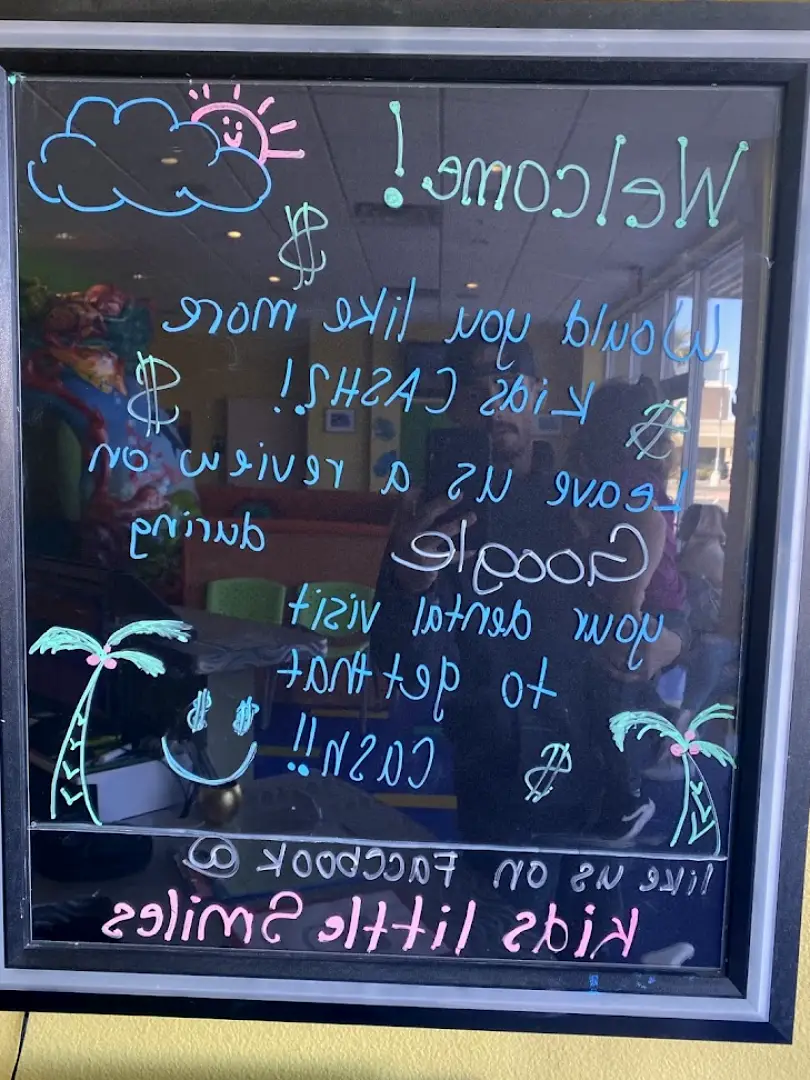 Welcome!
$
Would you like more
$ Kids CASH?! $
Leave us a review on
Google during
your dental visit
to get that
$ CASH!!
like us on Facebook @
Kids little Smiles